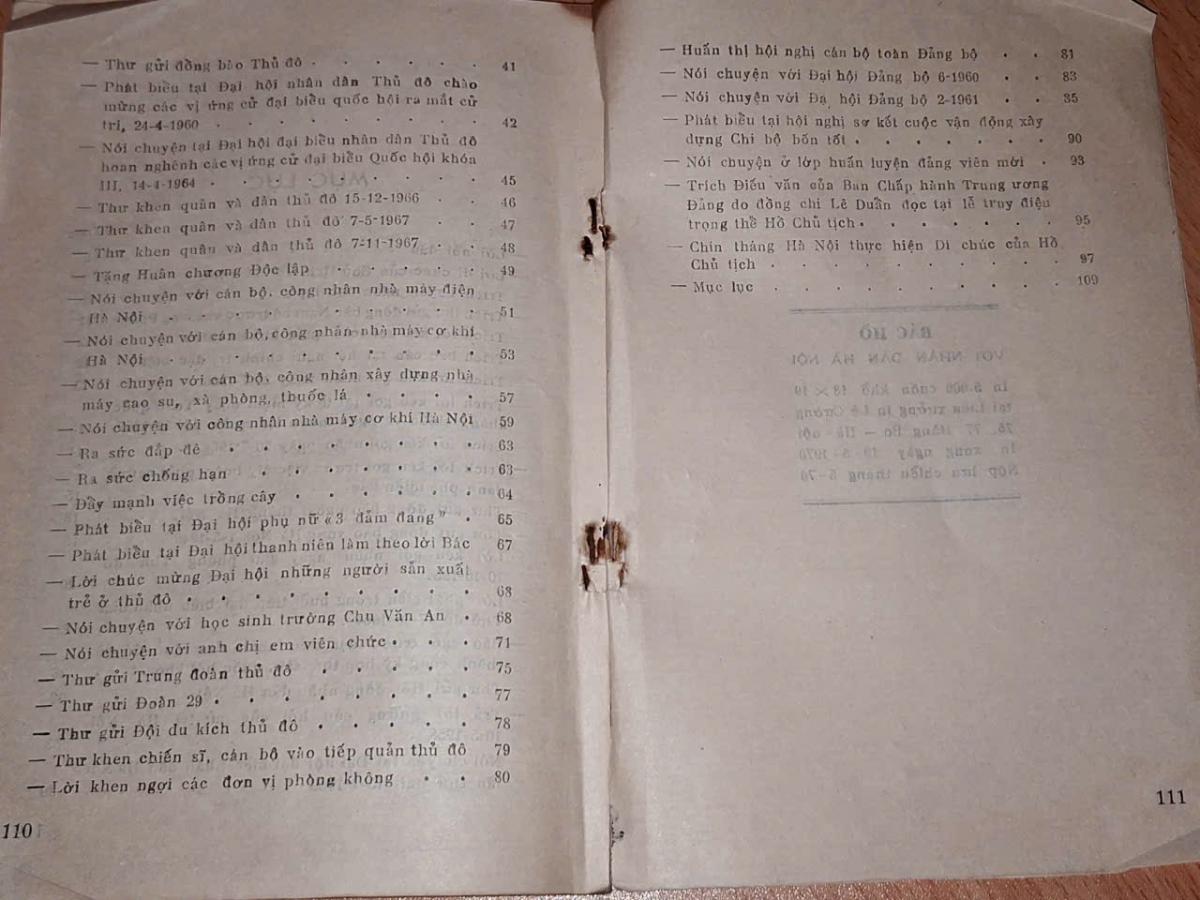 — Thư gửi đồng bào Thủ đô . . . . . . 41
— Phát biểu tại Đại hội nhân dân Thủ đô chào
mừng các vị ứng cử đại biểu quốc hội ra mắt cử
tri, 24-4-1960 . . . . . . . . 42
— Nói chuyện tại Đại hội đại biểu nhân dân Thủ đô
hoan nghênh các vị ứng cử đại biểu Quốc hội khóa
III, 14-4-1964 . . . . . . . . 45
— Thư khen quân và dân thủ đô 15-12-1966 . . 46
— Thư khen quân và dân thủ đô 7-5-1967 . . 47
— Thư khen quân và dân thủ đô 7-11-1967 . . 48
— Tặng Huân chương Độc lập . . . . . . 49
— Nói chuyện với cán bộ, công nhân nhà máy điện
Hà Nội . . . . . . . . . 51
— Nói chuyện với cán bộ, công nhân nhà máy cơ khí
Hà Nội . . . . . . . . . 53
— Nói chuyện với cán bộ, công nhân xây dựng nhà
máy cao su, xà phòng, thuốc lá . . . . . 57
— Nói chuyện với công nhân nhà máy cơ khí Hà Nội 59
— Ra sức đắp đê . . . . . . . . 63
— Ra sức chống hạn . . . . . . . 63
— Đẩy mạnh việc trồng cây . . . . . . 64
— Phát biểu tại Đại hội phụ nữ «3 đảm đang” . 65
— Phát biểu tại Đại hội thanh niên làm theo lời Bác 67
— Lời chúc mừng Đại hội những người sản xuất
trẻ ở thủ đô . . . . . . . . . 68
— Nói chuyện với học sinh trường Chu Văn An . 68
— Nói chuyện với anh chị em viên chức . . . 71
— Thư gửi Trung đoàn thủ đô . . . . . . 75
— Thư gửi Đoàn 29 . . . . . . . . 77
— Thư gửi Đội du kích thủ đô . . . . . 78
— Thư khen chiến sĩ, cán bộ vào tiếp quản thủ đô 79
— Lời khen ngợi các đơn vị phòng không . . 80
110
— Huấn thị hội nghị cán bộ toàn Đảng bộ . . 81
— Nói chuyện với Đại hội Đảng bộ 6-1960 . . 83
— Nói chuyện với Đạ hội Đảng bộ 2-1961 . . 85
— Phát biểu tại hội nghị sơ kết cuộc vận động xây
dựng Chi bộ bốn tốt . . . . . . . 90
— Nói chuyện ở lớp huấn luyện đảng viên mới . 93
— Trích Điếu văn của Ban Chấp hành Trung ương
Đảng do đồng chí Lê Duẩn đọc tại lễ truy điệu
trọng thể Hồ Chủ tịch . . . . . . . 95
— Chín tháng Hà Nội thực hiện Di chúc của Hồ
Chủ tịch . . . . . . . . . 97
— Mục lục . . . . . . . . . 109
111